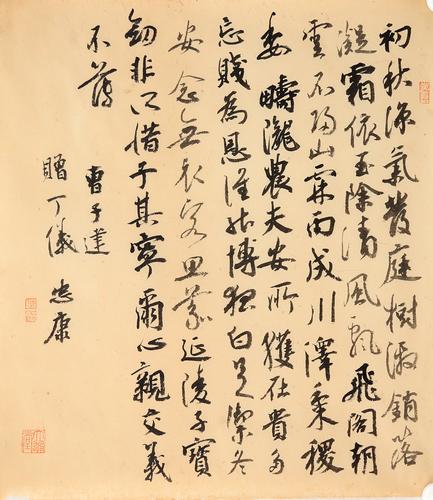 初秋涼氣發庭樹微銷落
凝霜依玉除清風飄飛閣朝
雲不歸山霖雨成川澤黍稷
委疇隴農夫安所獲在貴多
忘賤為恩誰能博狐白足禦冬
安念無衣客思慕延陵子寶
劒非所惜子其寧爾心親交義
不薄
曹子建
贈丁儀 忠康